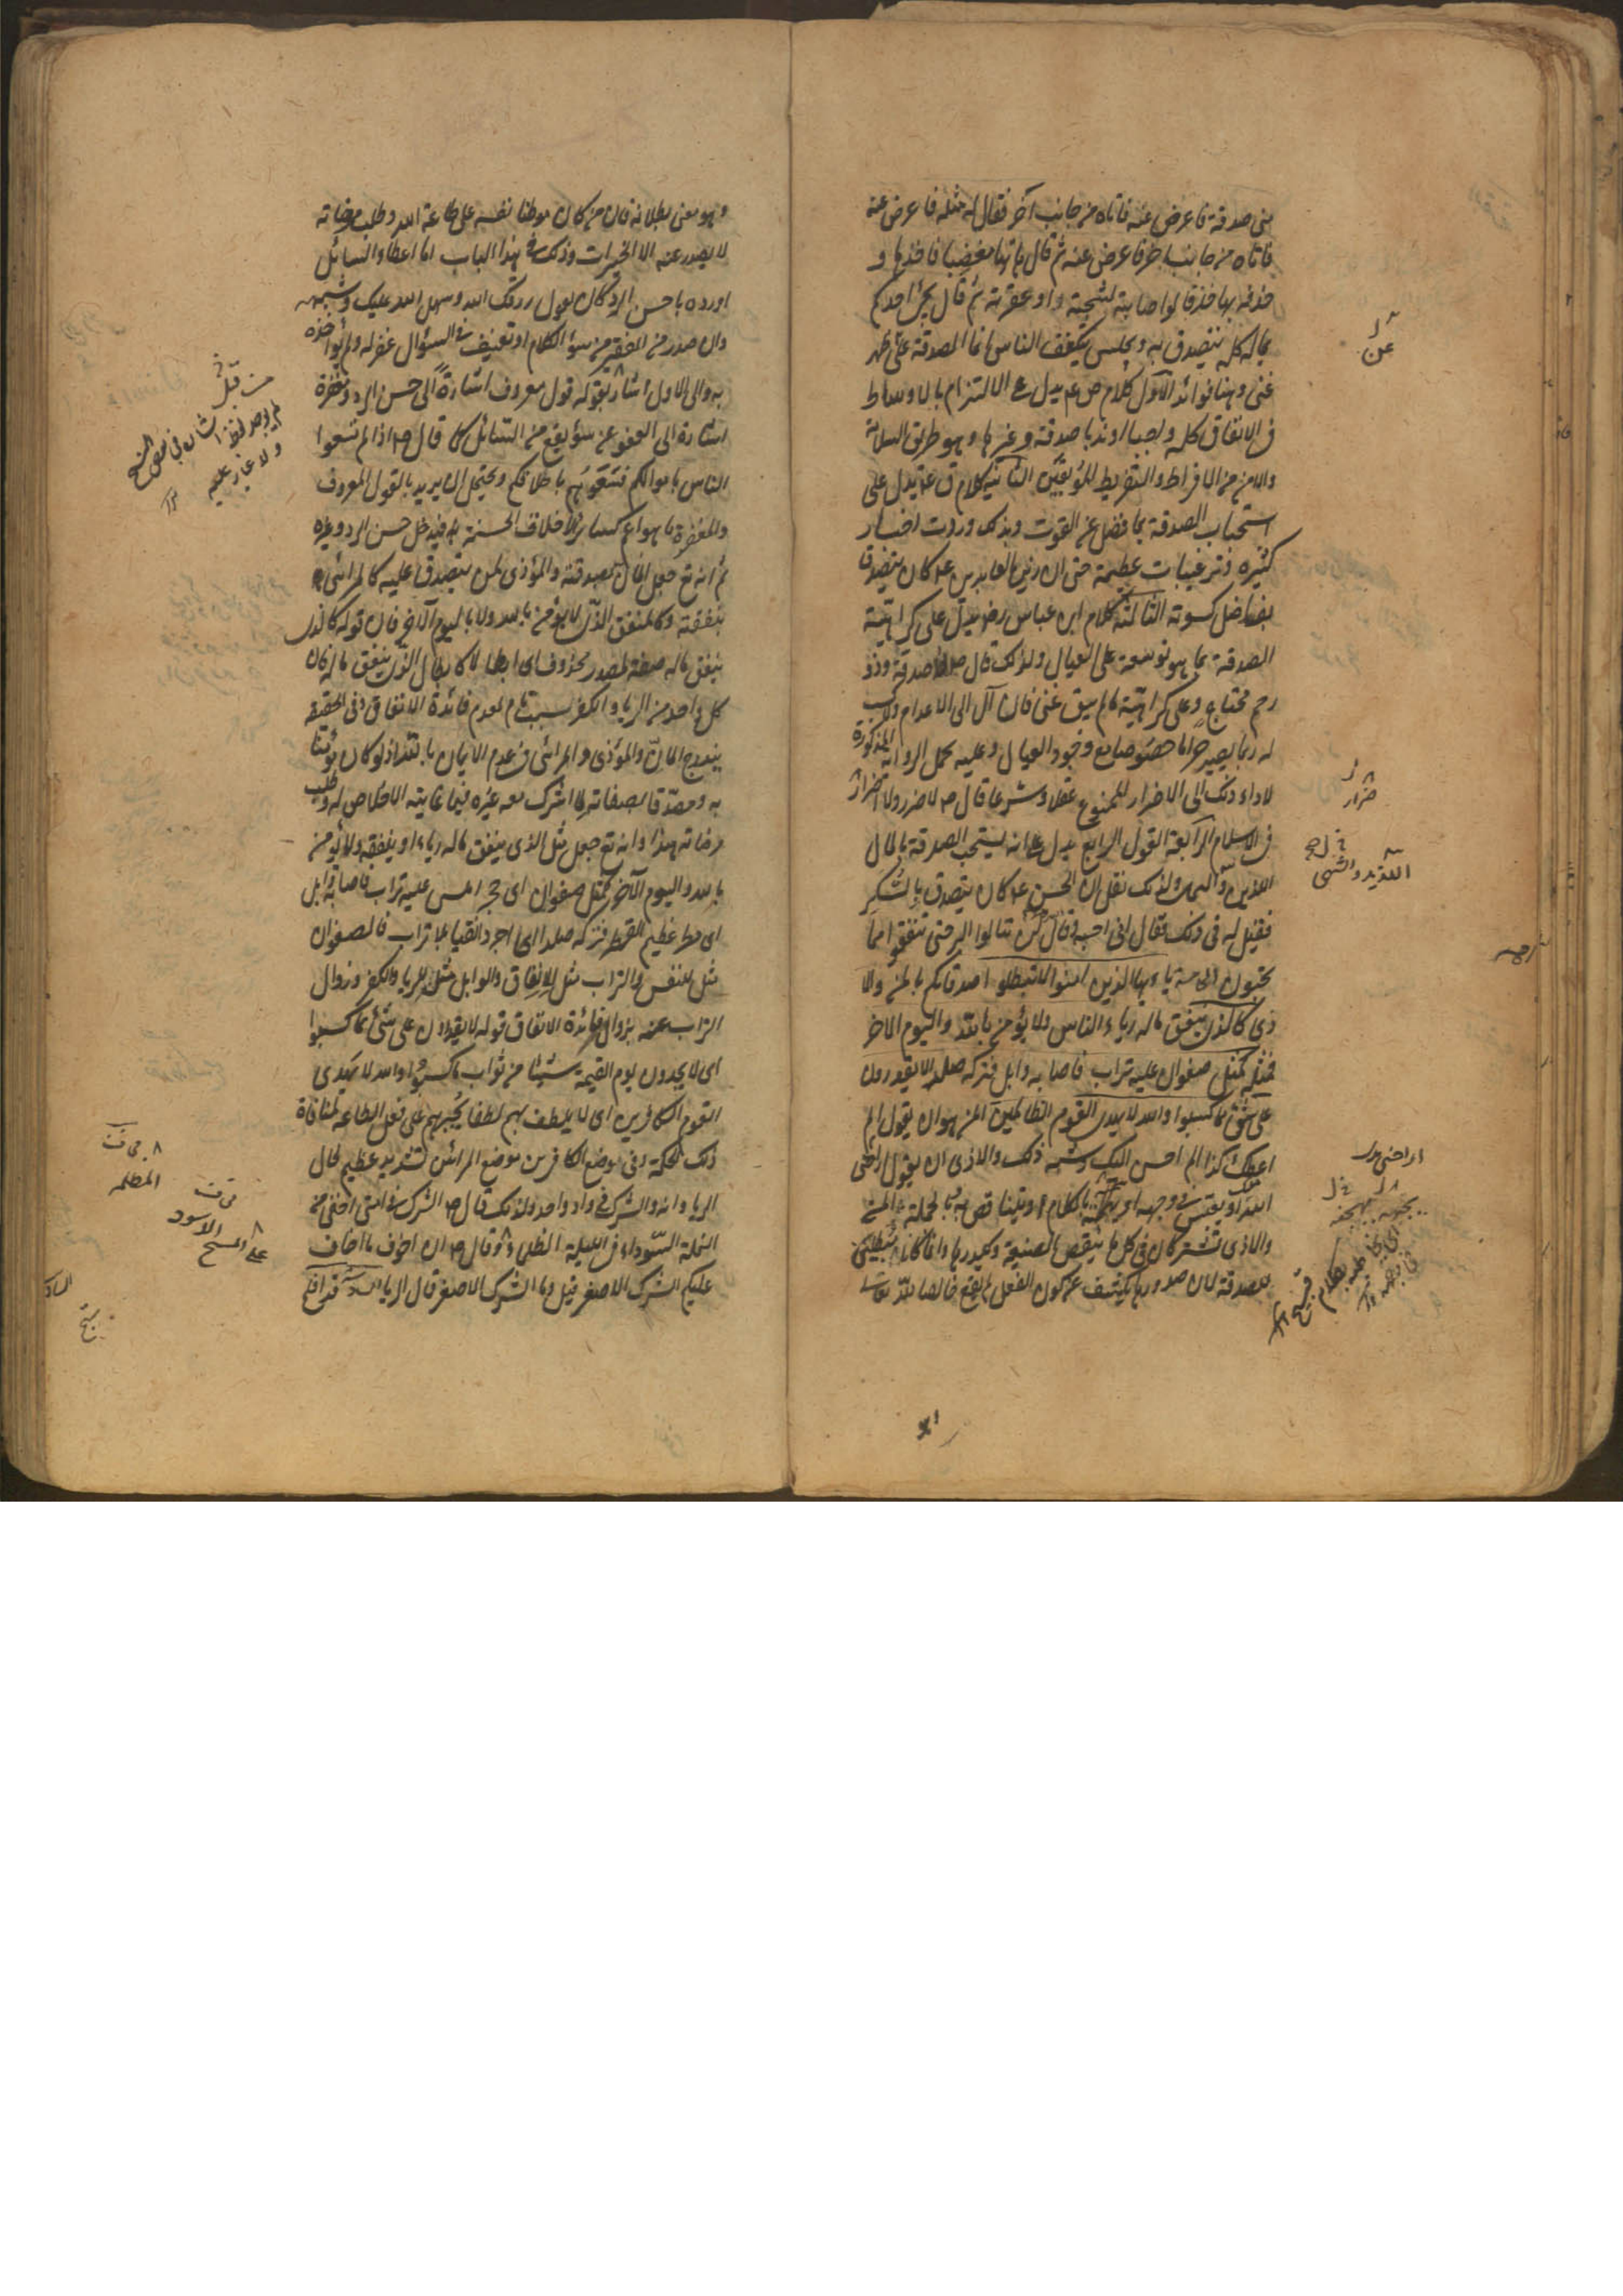 منى صدقة فاعرض عنه فاتاه من جانب آخر فقال له مثله فاعرض عنه
فاتاه من جانب اخر فاعرض عنه ثم قال هاتها مغضبا فاخذها و
حذفه بها حذفا لو اصابه لشجته او عقرته ثم قال يجئ احدكم
بماله كله يتصدق به ويجلس يتكفف الناس انما الصدقة على ظهر
غنى وهنا فوائد الاول كلام ص ع يدل على الالتزام بالاوساط
فى الانفاق كله واجبا او ندبا صدقة وغيرها وهو طريق السلامة
والامن من الافراط والتفريط الموبقين الثانية كلام ق ع يدل على
استحباب الصدقة بما فضل عن القوت وبذلك وردت اخبار
كثيره وترغيبات عظيمة حتى ان زين العابدين ع كان يتصدق
بفاضل كسوته الثالثة كلام ابن عباس رض يدل على كراهية
الصدقة بما هو توسعة على العيال ولذلك قال ص لا صدقة وذو
رحم محتاج وعلى كراهية ما لم يبق غنى فان آل الى الاعدام ولا كسب
له ربما يصير حراما خصوصا مع وجود العيال وعليه يحمل الرواية المذكورة
لاداء ذلك الى الاضرار الممنوع عقلا وشرعا قال ص لا ضرر ولا اضرار
فى الاسلام الرابعة القول الرابع يدل على انه يستحب الصدقة بالمال
اللذيذ ولذلك نقل ان الحسن ع كان يتصدق بالسكر
فقيل له فى ذلك فقال انى احبه وقال لن تنالوا البر حتى تنفقوا مما
تحبون يا ايها الذين امنوا لا تبطلوا صدقاتكم بالمن والا
ذى كالذى ينفق ماله رياء الناس ولا يؤمن بالله واليوم الاخر
فمثله كمثل صفوان عليه تراب فاصابه وابل فتركه صلدا لا يقدرون
على شئ مما كسبوا والله لا يهدى القوم الظالمين المن هو ان يقول الم
اعطك كذا الم احسن اليك وشبه ذلك والاذى ان يقول اراحنى
الله منك او يعبس فى وجهه او يجبهه بالكلام او يتناقص به وبالجملة المن
والاذى تشتركان فى كل ما ينقص الصنيعة ويكدرها وانما كانا مبطلين
للصدقة لان صدورهما يكشف عن كون الفعل لم يقع خالصا لله تعالى
عن
ضرار
اراحنى الله
يجبهه
اى يخاطبه بكلام قبيح
وهو معنى بطلانه فان من كان موطنا نفسه على طاعة الله وطلب مرضاته
لا يصدر عنه الا الخيرات وذلك فى هذا الباب اما اعطاء السائل
او رده باحسن الرد كان يقول رزقك الله وسهل الله عليك وشبهه
وان صدر من الفقير من سوء الكلام او تعنيف فى السؤال غفر له ولم يؤاخذه
به والى الاول اشار بقوله قول معروف اشارة الى حسن الرد ومغفرة
اشارة الى العفو عن سوء يقع من السائل كما قال ص اذا لم تسعوا
الناس باموالكم فسعوهم باخلاقكم ويحتمل ان يريد بالقول المعروف
والمغفرة ما هو اعم كسائر الاخلاق الحسنة فيدخل حسن الرد وغيره
ثم انه تع جعل المان بصدقته والمؤذى لمن يتصدق عليه كالمرائى
بنفقته وكالمنفق الذى لا يؤمن بالله ولا باليوم الآخر فان قوله كالذى
ينفق ماله صفة لمصدر محذوف اى ابطالا كابطال الذى ينفق ماله فان
كل واحد من الريا والكفر سبب تام لعدم فائدة الانفاق وفى الحقيقة
يندرج المان والمؤذى والمرائى فى عدم الايمان بالله اذ لو كان مؤمنا
به ومصدقا بصفاته لما اشرك معه غيره فيما غايته الاخلاص له وطلب
مرضاته هذا وانه تع جعل مثل الذى ينفق ماله رياء او ينفقه ولا يؤمن
بالله واليوم الآخر كمثل صفوان اى حجر املس عليه تراب فاصابه وابل
اى مطر عظيم القطر فتركه صلدا اى اجرد نقيا بلا تراب فالصفوان
مثل للنفس والتراب مثل للانفاق والوابل مثل للريا والكفر وزوال
التراب عنه بزوال فائدة الانفاق قوله لا يقدرون على شئ مما كسبوا
اى لا يجدون يوم القيمة شيئا من ثواب ما كسبوا والله لا يهدى
القوم الكافرين اى لا يلطف بهم لطفا يجبرهم على فعل الطاعه لمنافاة
ذلك الحكمة وفى وضع الكافرين موضع المرائين تشديد عظيم لحال
الريا وانه والشرك فى واد واحد ولذلك قال ص الشرك فى امتى اخفى من
النملة السوداء فى الليلة الظلماء وقال ص ان اخوف ما اخاف
عليكم الشرك الاصغر قيل وما الشرك الاصغر قال الريا
لم يوجد لفظ اشار فى بعض النسخ
ولا غبار عليه
المظلمه
على المسح الاسود